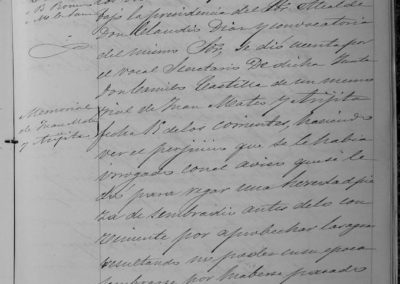 bajo la presidencia del Sr. Alcalde
Don Claudio Dias y convocatoria
del mismo Sr, se dió cuenta por
el vocal Secretario De dicha Junta
Don Camilo Castilla de un memo
rial de Juan Mateo y Arizti
fecha 15 de los corrientes, haciendo
ver el perjuicio que se le habia
irrogado con el aviso que se le
dió para regar una heredad pie
za de sembradio antes de lo con
viniente por aprobechar las aguas
resultando no poder en su epoca
sembrarse por haberse pasado
Memorial
de Juan Mateo
y Arizti